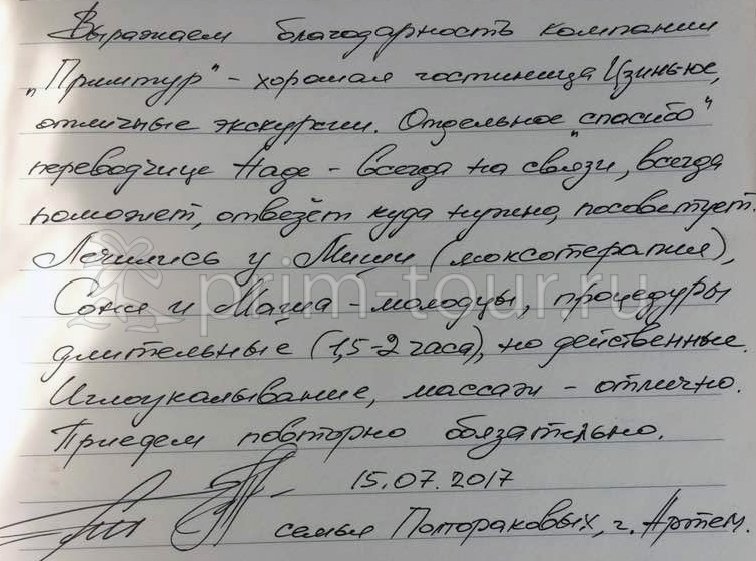 Выражаем благодарность компании
"Примтур" - хорошая гостиница Цзинь-юе,
отличные экскурсии. Отдельное "спасибо"
переводчице Наде - всегда на связи, всегда
поможет, отвезёт куда нужно, посоветует.
Лечились у Миши (моксотерапия),
prim-tour.ru
Соня и Маша - молодцы, процедуры
длительные (1,5-2 часа), но действенные.
Иглоукалывание, массаж - отлично.
Приедем повторно обязательно.
15.07.2017
семья Полтораковых, г. Артем.